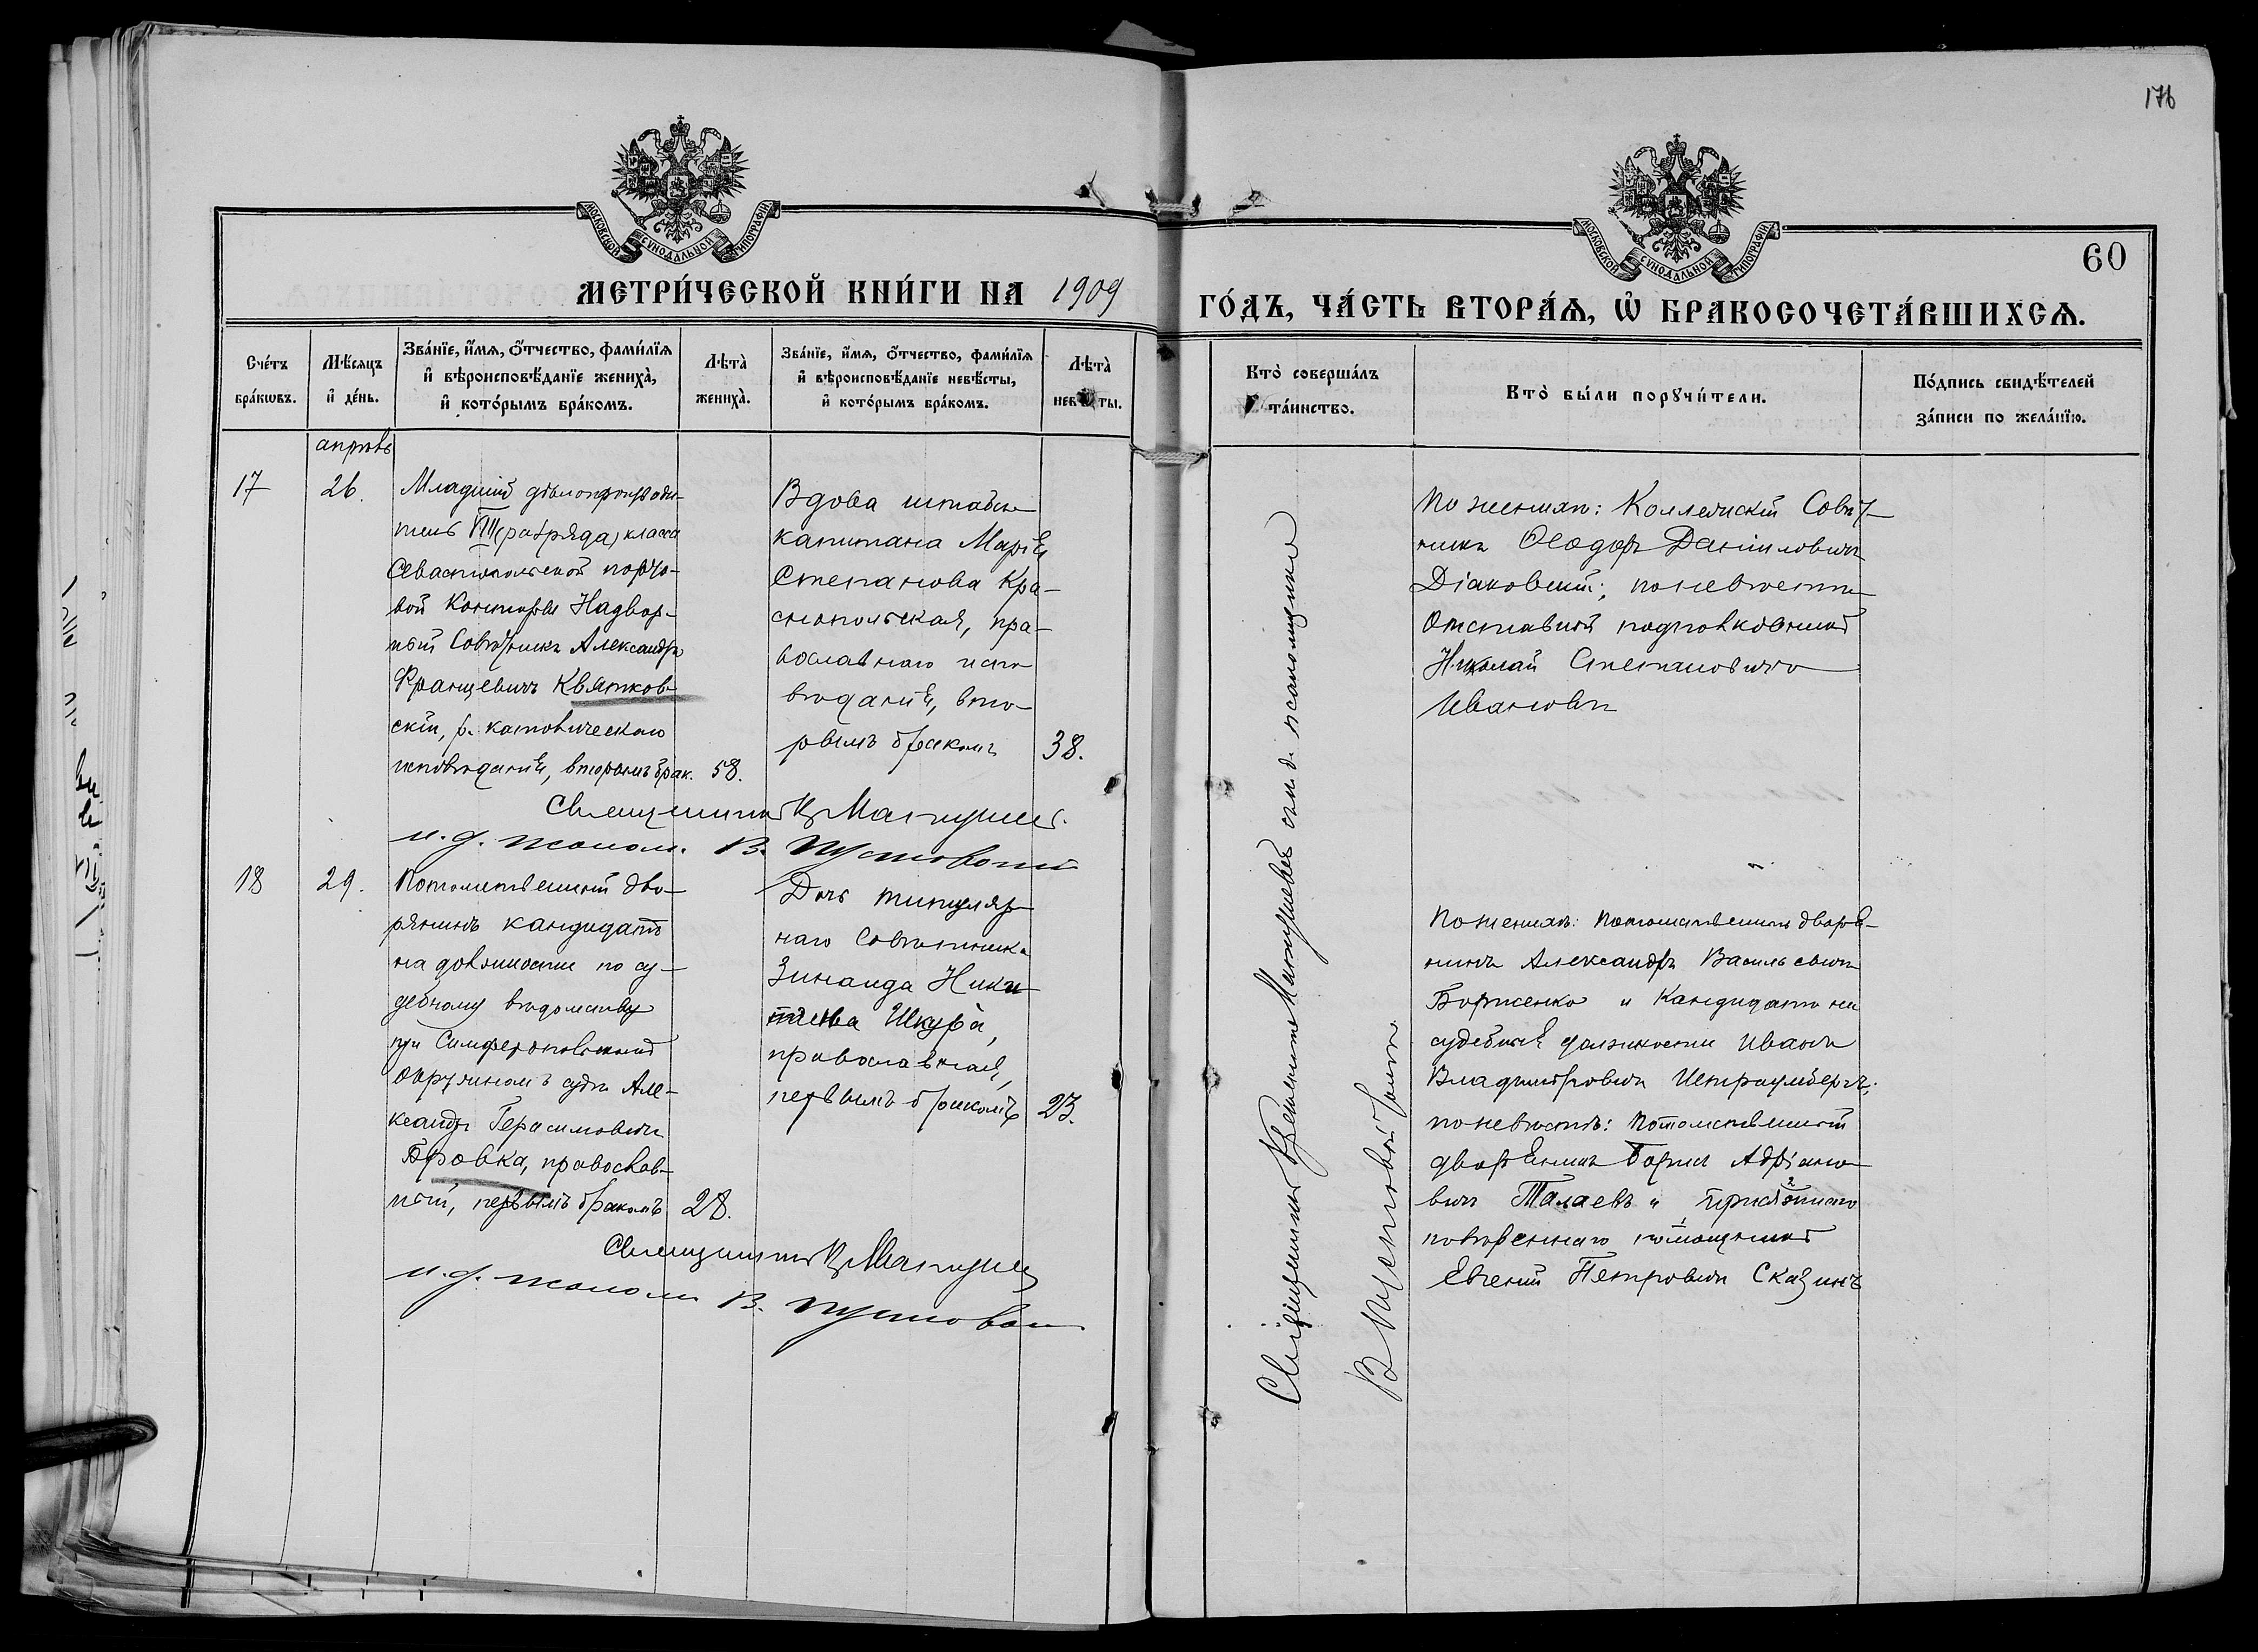 176
МОСКОВСКОЙ СѴНОДАЛЬНОЙ ТИПОГРАФІИ
МОСКОВСКОЙ СѴНОДАЛЬНОЙ ТИПОГРАФІИ
60
МЕТРИ́ЧЕСКОЙ КНИ́ГИ НА 1909
ГО́ДЪ, ЧА́СТЬ ВТОРА́Ѧ, Ѡ҆ БРАКОСОЧЕТА́ВШИХСѦ.
Сче́тъ
бра́кѡвъ.
Мѣ́сяцъ
и҆ де́нь.
Зва́нїе, и҆́мѧ, ѻ҆́тчество, фами́лїѧ
и҆ вѣроисповѣ́данїе жениха̀,
и҆ кото́рымъ бра́комъ.
Лѣта̀
жениха̀.
Зва́нїе, и҆́мѧ, ѻ҆́тчество, фами́лїѧ
и҆ вѣроисповѣ́данїе невѣ́сты,
и҆ кото́рымъ бра́комъ.
Лѣта̀
нев ты.
Кто̀ соверша́лъ
та́инство.
Кто̀ бы́ли порꙋчи́тели.
По́дпись свидѣ́телей
за́писи по жела́нїю.
апрѣль
17
26.
Младшій дѣлопроизводи-
тель VIII (разряда) класса
Севастопольской порто-
вой Конторы Надвор-
ный Совѣтникъ Александръ
Францевичъ Квятков-
скій, р. католическаго
исповѣданія, вторымъ брак.
58.
Вдова штабсъ
капитана Марія
Степанова Кра-
снопольская, пра-
вославнаго испо
вѣданія, вто-
рымъ бракомъ
38.
по женихѣ: Коллежскій Совѣт-
никъ Ѳеодоръ Даніиловичъ
Діаковскій; по невѣстѣ
Отставной подполковникъ
Николай Степановичъ
Ивановъ
Священникъ
и. д. псалом. В.
18
29.
Потомственный дво-
рянинъ кандидатъ
на должности по су-
дебному вѣдомству
при Симферопольскомъ
Окружномъ судѣ Але-
ксандръ Герасимовичъ
Бровка, православ-
ный, первымъ бракомъ
28.
Дочь титуляр-
наго Совѣтника
Зинаида Ники
тична Шкура,
православная,
первымъ бракомъ
23.
По женихѣ: Потомственный дворя-
нинъ Александръ Васильевичъ
Борженко и Кандидатъ на
судебныя должности Иванъ
Владиміровичъ
по невѣстѣ: Потомственный
дворянинъ Борисъ Адріано-
вичъ Талаевъ и присяжнаго
повѣреннаго помощникъ
Евгеній Петровичъ Сказинъ
Священникъ
и. д. псалом. В.
Священникъ съ и. д. псаломщика